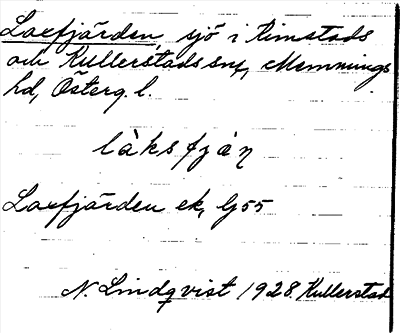 Laxfjärden, sjö i Kimstads
och Kullerstads snr, Memmings
hd, Österg. l.
làksfjàn
Laxfjärden ek, Gj 55
N. Lindqvist 1928. Kullerstad